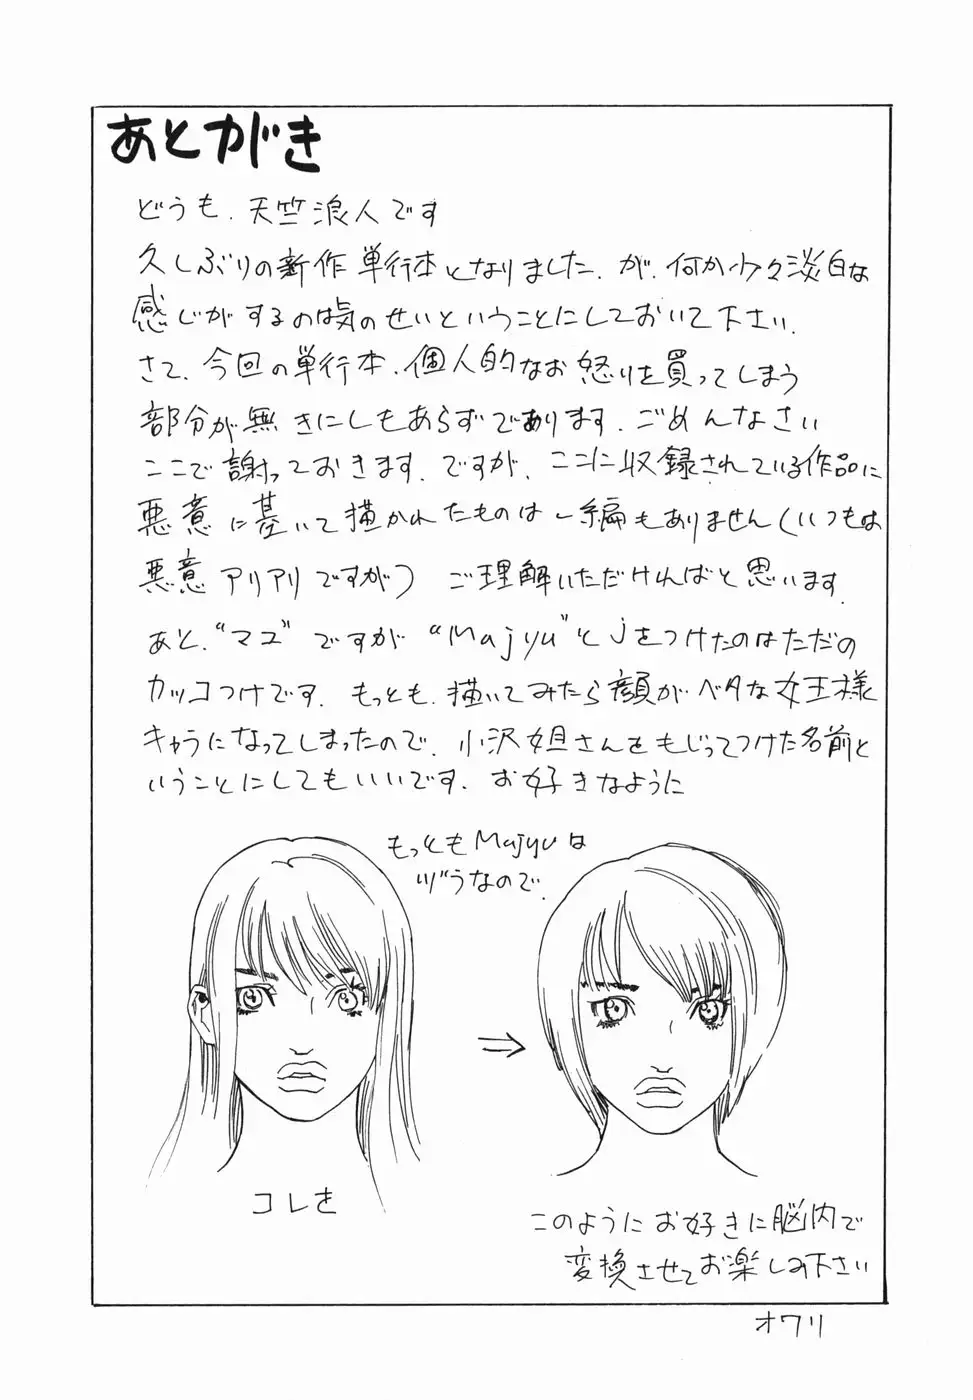 あとがき
どうも、天竺浪人です
久しぶりの新作単行本となりました、が、何か少々淡白な
感じがするのは気のせいということにしておいて下さい、
さて、今回の単行本、個人的なお怒りを買ってしまう
部分が無きにしもあらずであります、ごめんなさい
ここで謝っておきます、ですが、ここに収録されている作品に
悪意に基いて描かれたものは一編もありません(いつもは
悪意アリアリですが) ご理解いただければと思います、
あと、“マユ”ですが“Majyu”とjをつけたのはただの
カッコつけです、もっとも、描いてみたら顔がベタな女王様
キャラになってしまったので、小沢姐さんをもじってつけた名前と
いうことにしてもいいです、お好きなように
もっともMajyuは
ヅラなので、
コレを
このようにお好きに脳内で
変換させてお楽しみ下さい
オワリ